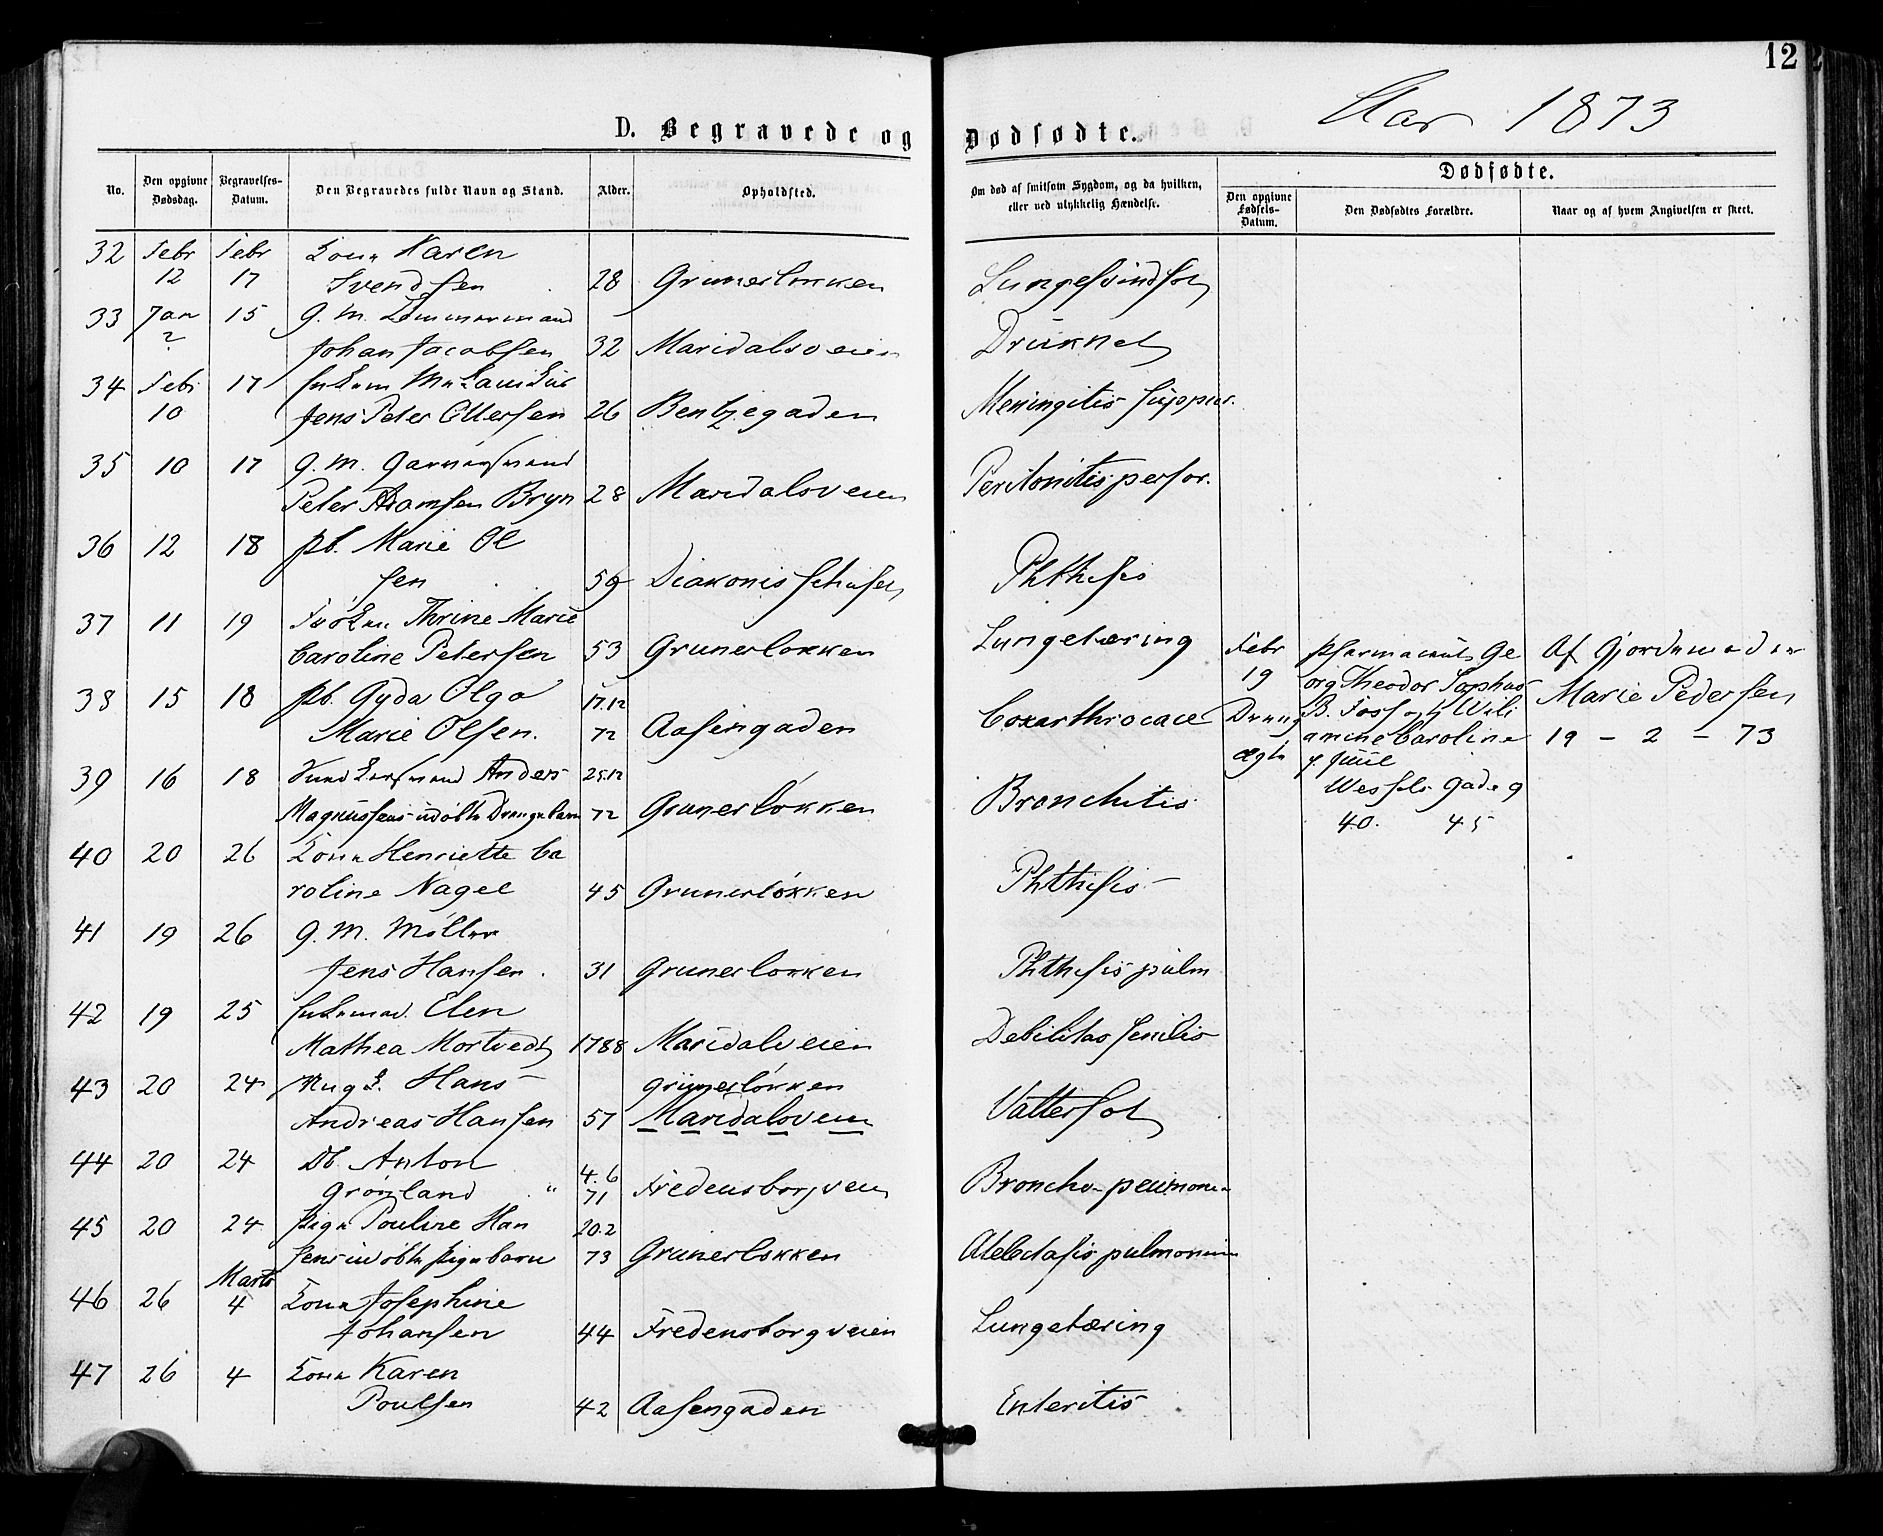 12
Aar 1873
D. Begravede og Dødfødte.
No.
Den opgivne Dødsdag.
Begravelses-Datum.
Den Begravedes fulde Navn og Stand.
Alder.
Opholdsted.
Om død af smitsom Sygdom, og da hvilken,
eller ved ulykkelig Hændelse.
Dødfødte.
Den opgivne Fødsels-Datum.
Den Dødfødtes Forældre.
Naar og af hvem Angivelsen er skeet.
32 Febr Febr Kone Karen
12 17 Svendsen 28 Grunerløkken Lungesvindsot
33 Jan 15 G. M. Tømmermand
? Johan Jacobsen 32 Maridalsveien Druknet
34 Feb. 17
10 Jens Peter Ottersen 26 Bentzegaden Meningitis suppur.
35 10 17 G. M. Garversvend
Peter Bryn 28 Maridalsveien Peritonitis perfor.
36 12 18 pb. Marie Ol
sen 59 Diakonissehuset Phthisis
37 11 19 Thrine Marie
Caroline Petersen 53 Grunerløkken Lungetæring
38 15 18 pb. Gyda Olga 17.12
Marie Olsen. 72 Aasengaden Coxarthrocace
39 16 18 Anders 25.12
Magnussens udøbte Drengebarn 72 Grunerløkken Bronchitis
40 20 26 Kone Henriette Ca
roline Nagel 45 Grunerløkken Phthisis
41 19 26 G. M. Møller
Jens Hansen. 31 Grunerløkken Phthisis pulm
42 19 25 Elen
Mathea Mortvedt 1788 Maridalsveien Debilitas senilis
43 20 24 Ung K. Hans Grünerløkken
Andreas Hansen 57 Maridalsveien Vattersot
44 20 24 Db. Anton 4.6
Grønland " 71 Fredensborgveien Broncho-pneumonia
45 20 24 Pige Pouline Han 20.2
sens udøbte Pigebarn 73 Grunerløkken Atelectasis pulmonum
Marts
46 26 4 Kone Josephine
Johansen 44 Fredensborgveien Lungetæring
47 26 4 Kone Karen
Poulsen 42 Aasengaden Enteritis
Febr Pharmaceut Ge Af Gjordemoder
19 org Theodor Sophus Marie Pedersen
Dreng B. Foss og H. Wili
amine Caroline 19 - 2 - 73
ægte f. Juul
Wessels Gade 9
40. 45